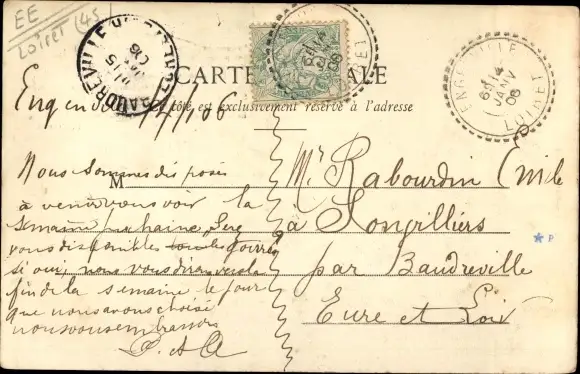 EE
Loiret (45)
BAUDREVILLE
15
06
ENGENVILLE
6 14
JANV
06
LOIRET
CARTE POSTALE
Ce côté est exclusivement réservé à l'adresse
Engenville 14/1/06
M
Nous sommes dis posés
à venir vous voir la
semaine prochaine, Sere
vous disponibles
si oui, nous vous dirons vers la
fin de la semaine le jour
que nous avons choisi
nous vous embrassons
Mr Rabourdin Emile
à Longvilliers
par Baudreville
Eure et Loir
P